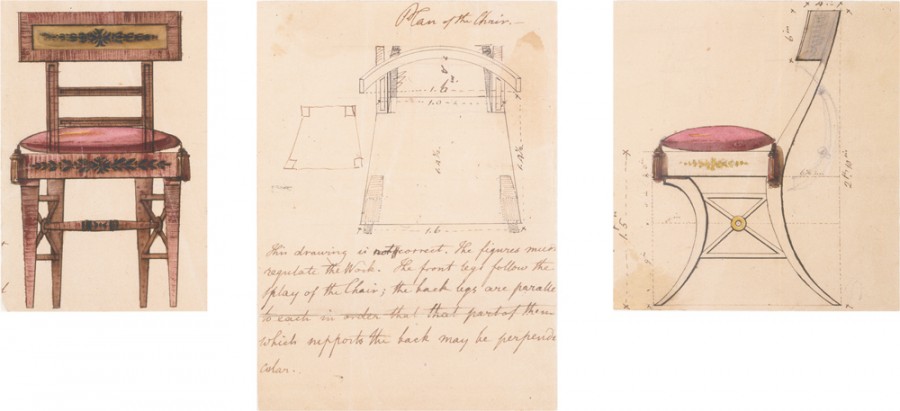 Plan of the Chair.—
6½
1.6
1.0
1.4½
1.4½
1.6
This drawing is not correct. The figures must
regulate the Work. The front legs follow the
splay of the Chair; the back legs are paralle
to each in order that that part of them
which supports the back may be perpendi
cular.-
4
6 in
1.5
2 ft 10 in